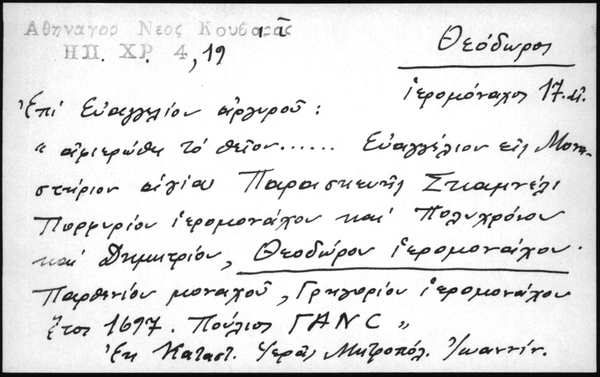 Ἀθηναγορ Νεος Κουβαρᾶς
ΗΠ. ΧΡ. 4, 19
Θεόδωρος
ἱερομόναχος 17. αἰ.
Ἐπί Εὐαγγελίου ἀργυροῦ:
"ἀφιερώθη τό θεῖον...... Εὐαγγέλιον εἰς Μονα-
στήριον ἁγίας Παρασκευῆς Σκαμνέλι
Πορφυρίου ἱερομονάχου καί Πολυχρόνιου
καί Δημητρίου, Θεοδώρου ἱερομονάχου.
Παρθενίου μοναχοῦ, Γρηγορίου ἱερομονάχου
ἔτος 1697. Πούλιος ΓΑΝС"
Ἐκ Καταστ. Ἱερᾶς Μητροπόλ. Ἰωαννίν.